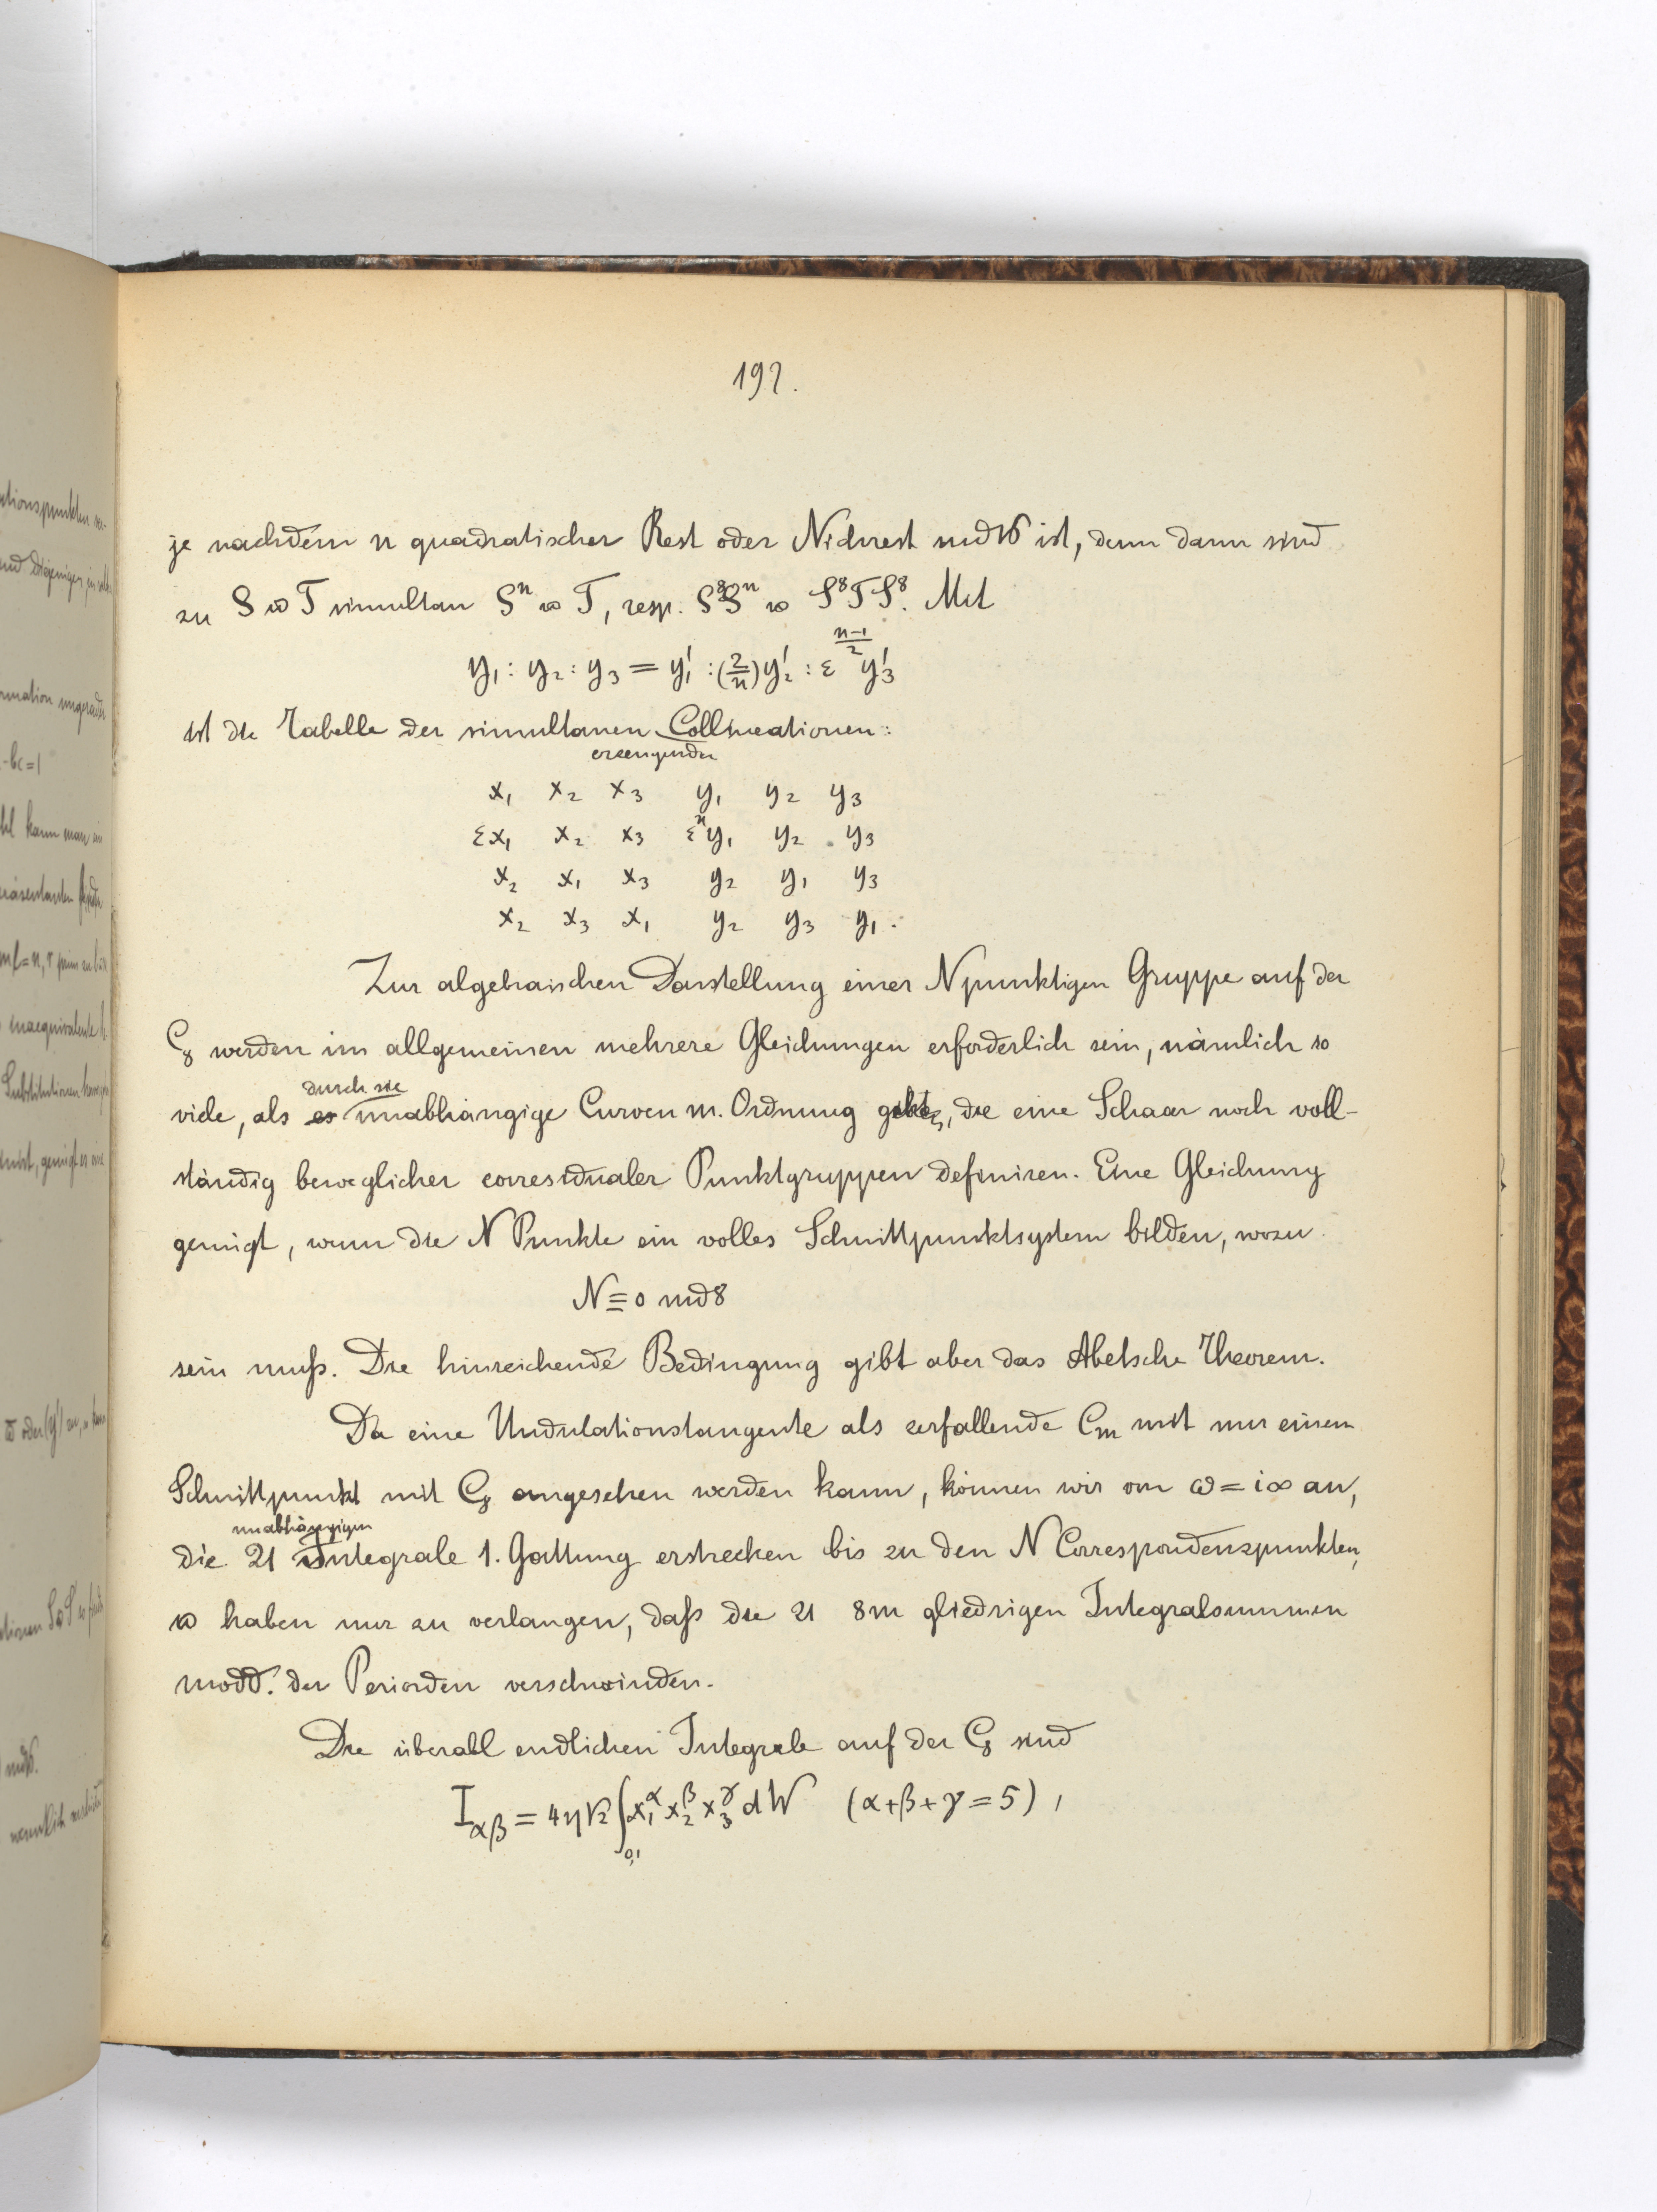 197.
je nachdem n quadratischer Rest oder Nichtrest md 16 ist, denn dann sind
zu S ∞ T simultan Sⁿ ∞ T, resp. S⁸Sⁿ ∞ S⁸TS⁸. Mit
y₁ : y₂ : y₃ = y₁' : (2/n) y₂' : ε^((n-1)/2) y₃'
ist die Tabelle der simultanen Collineationen:
erzeugenden
x₁ x₂ x₃ y₁ y₂ y₃
εx₁ x₂ x₃ εⁿy₁ y₂ y₃
x₂ x₁ x₃ y₂ y₁ y₃
x₂ x₃ x₁ y₂ y₃ y₁.
Zur algebraischen Darstellung einer N punktigen Gruppe auf der
C₈ werden im allgemeinen mehrere Gleichungen erforderlich sein, nämlich so
durch sie
viele, als es unabhängige Curven m. Ordnung gibt, die eine Schaar noch voll-
ständig beweglicher corresidualer Punktgruppen definiren. Eine Gleichung
genügt, wenn die N Punkte ein volles Schnittpunktsystem bilden, wozu
N ≡ 0 md 8
sein muß. Die hinreichende Bedingung gibt aber das Abelsche Theorem.
Da eine Undulationstangente als zerfallende Cₘ mit nur einem
Schnittpunkt mit C₈ angesehen werden kann, können wir von ω = i∞ an,
unabhängigen
die 21 Integrale 1. Gattung erstrecken bis zu den N Correspondenzpunkten,
∞ haben nur zu verlangen, daß die 21 8m gliedrigen Integralsummen
modd. der Perioden verschwinden.
Die überall endlichen Integrale auf der C₈ sind
I_αβ = 4η√2 ∫₀,₁ x₁^α x₂^β x₃^γ dW (α+β+γ=5),